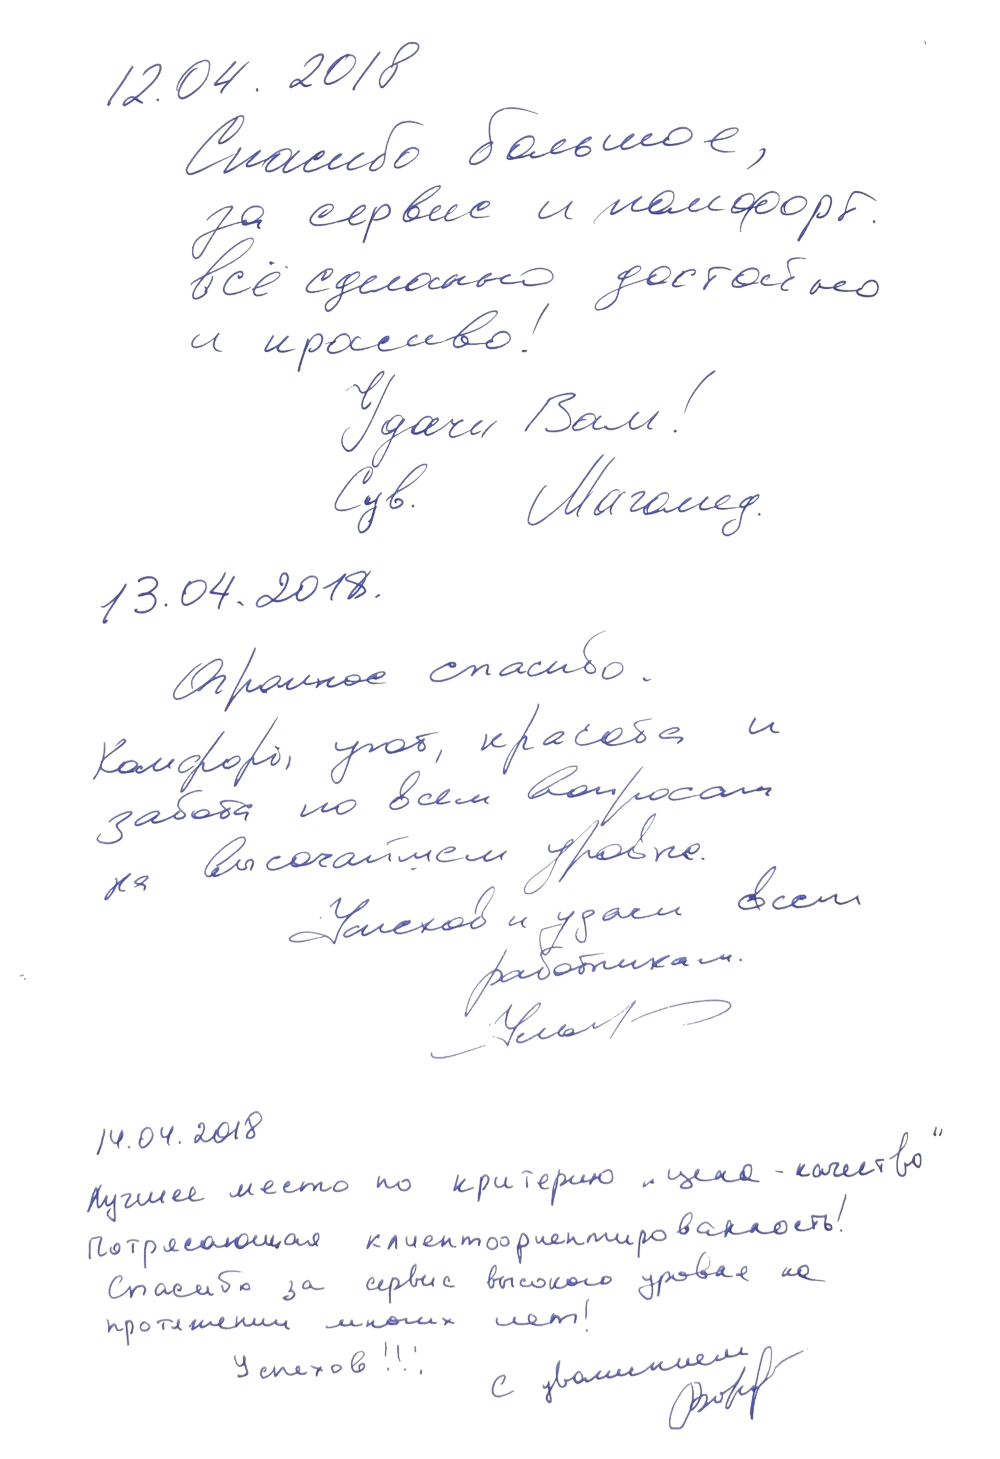 12.04.2018
Спасибо большое,
за сервис и комфорт.
всё сделанно достойно
и красиво!
Удачи Вам!
Сув. Магомед.
13.04.2018.
Огромное спасибо.
Комфорт, уют, красота и
забота по всем вопросам
на высочайшем уровне.
Успехов и удачи всем
работникам.
14.04.2018
Лучшее место по критерию „цена - качество"
Потрясающая клиентоориентированность!
Спасибо за сервис высокого уровня на
протяжении многих лет!
Успехов!!!
С уважением